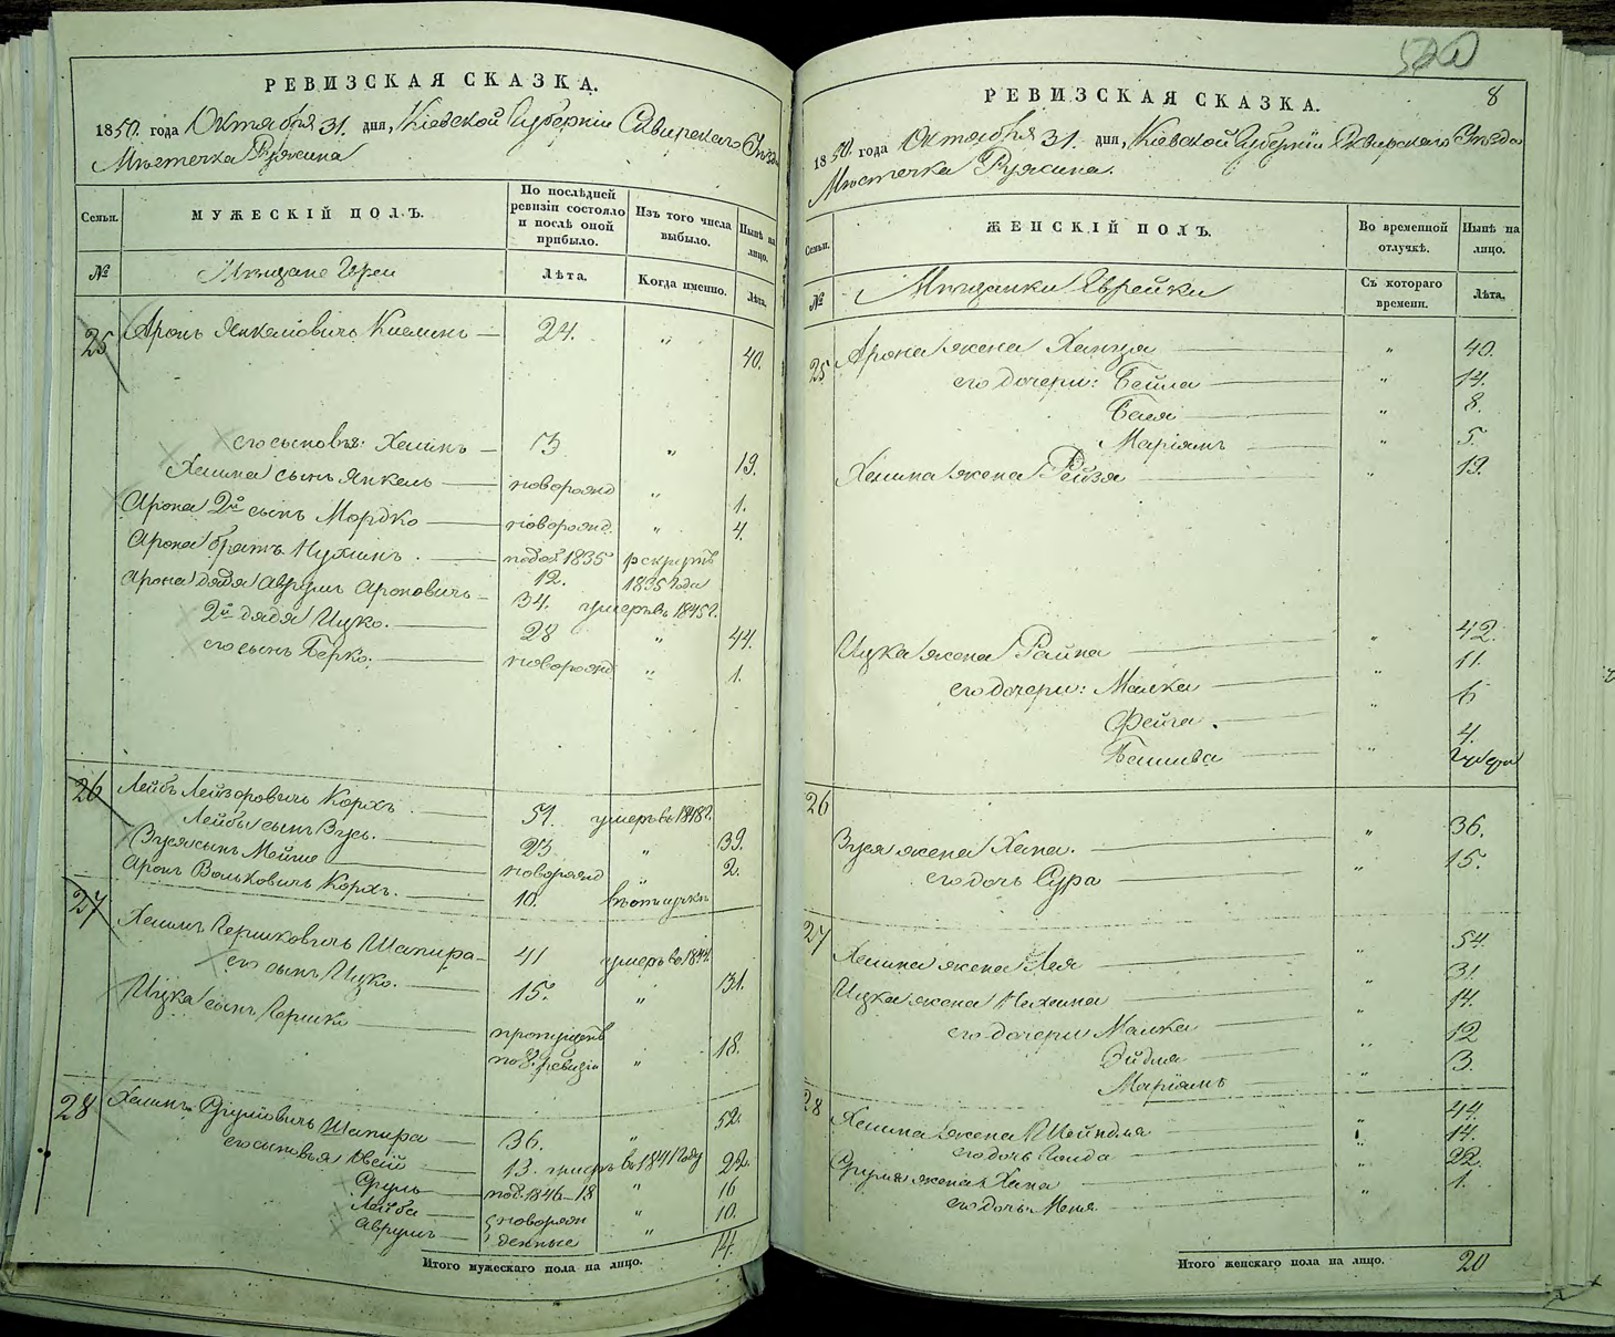 РЕВИЗСКАЯ СКАЗКА.
1850. года Октября 31. дня, Кіевской Губерніи Сквирскаго Уѣзда
Мѣстечка Ружина
Семьи.
МУЖЕСКІЙ ПОЛЪ.
По послѣдней ревизіи состояло и послѣ оной прибыло.
Изъ того числа выбыло.
Нынѣ на лицо.
№
Мѣщане Евреи
Лѣта.
Когда именно.
Лѣта.
25 Аронъ Янкелiовичъ 24. „ 40.
его сыновья: Хаимъ 13 „ 19.
Хаима сынъ Янкель новорожд „ 1.
Арона 2й сынъ Мордко новорожд. „ 4.
Арона братъ Нухимъ 1835
12. 1835 года
Арона дядя Аврумъ Ароновичъ 34. умеръ въ 1845 г.
2й дядя Ицко. 28 „ 44.
его сынъ Берко. новорожд „ 1.
26 Лейбъ Лейзоровичъ Коржъ 51. умеръ въ 1848 г.
Лейбы сынъ Зусь. 23 „ 39.
Зуся сынъ Мойше новорожд „ 2.
Аронъ Вольковичъ Коржъ. 10. въ отлучкѣ
27 Хаимъ Гершковичъ Шапира 41 умеръ въ 1844
его сынъ Ицко. 15. „ 31.
Ицка сынъ Гершко пропущенъ
по 8. ревизіи „ 18.
28 Хаимъ Сруліовичъ Шапира 36. „ 52.
его сыновья Овсій 13. умеръ въ 1841 году 22.
Сруль 1846–18 „ 16
Лейба новорож „ 10.
Аврумъ денные „
Итого мужескаго пола на лицо. 14.
520
8
РЕВИЗСКАЯ СКАЗКА.
1850. года Октября 31. дня, Кіевской Губерніи Сквирскаго Уѣзда
Мѣстечка Ружина.
Семьи.
ЖЕНСКІЙ ПОЛЪ.
Во временной отлучкѣ.
Нынѣ на лицо.
№
Мѣщанки Еврейки
Съ котораго времени.
Лѣта.
25 Арона жена Ханца „ 40.
его дочери: Бейла „ 14.
Бася „ 8.
Маріямъ „ 5.
Хаима жена Рейзя „ 19.
Ицка жена Райна „ 42.
его дочери: Малка „ 11.
Фейга. „ 6
Башива „ 4.
26
Зуся жена Хана. „ 36.
его дочь Сура „ 15.
27 Хаима жена Лея „ 54.
Ицка жена Нехама „ 31.
его дочери Малка „ 14.
Эйдля „ 12
Маріямъ „ 3.
28 Хаима жена Шейндля „ 44.
его дочь Голда „ 14.
Сруля жена Хана „ 22.
его дочь Меня. „ 1.
Итого женскаго пола на лицо. 20